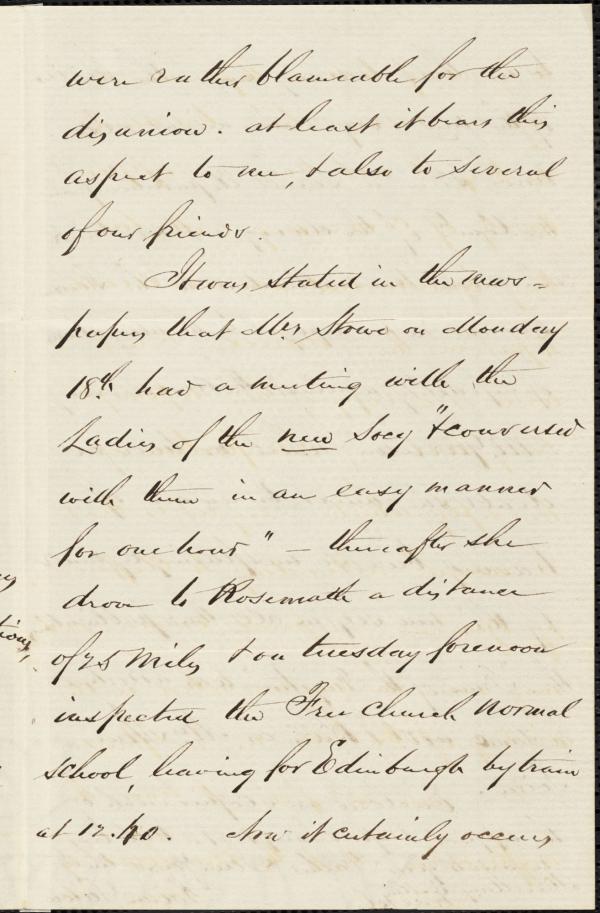 were rather blameable for the
disunion. at least it bears this
aspect to me, & also to several
of our friends.
It was stated in the news-
papers that Mrs Stowe on Monday
18th had a meeting with the
Ladies of the new Socy "& conversed
with them in an easy manner
for one hour" — thereafter she
drove to Rosemath a distance
of 25 Miles & on tuesday forenoon
inspected the Free Church Normal
School, leaving for Edinburgh by train
at 12.40. Now it certainly occurs